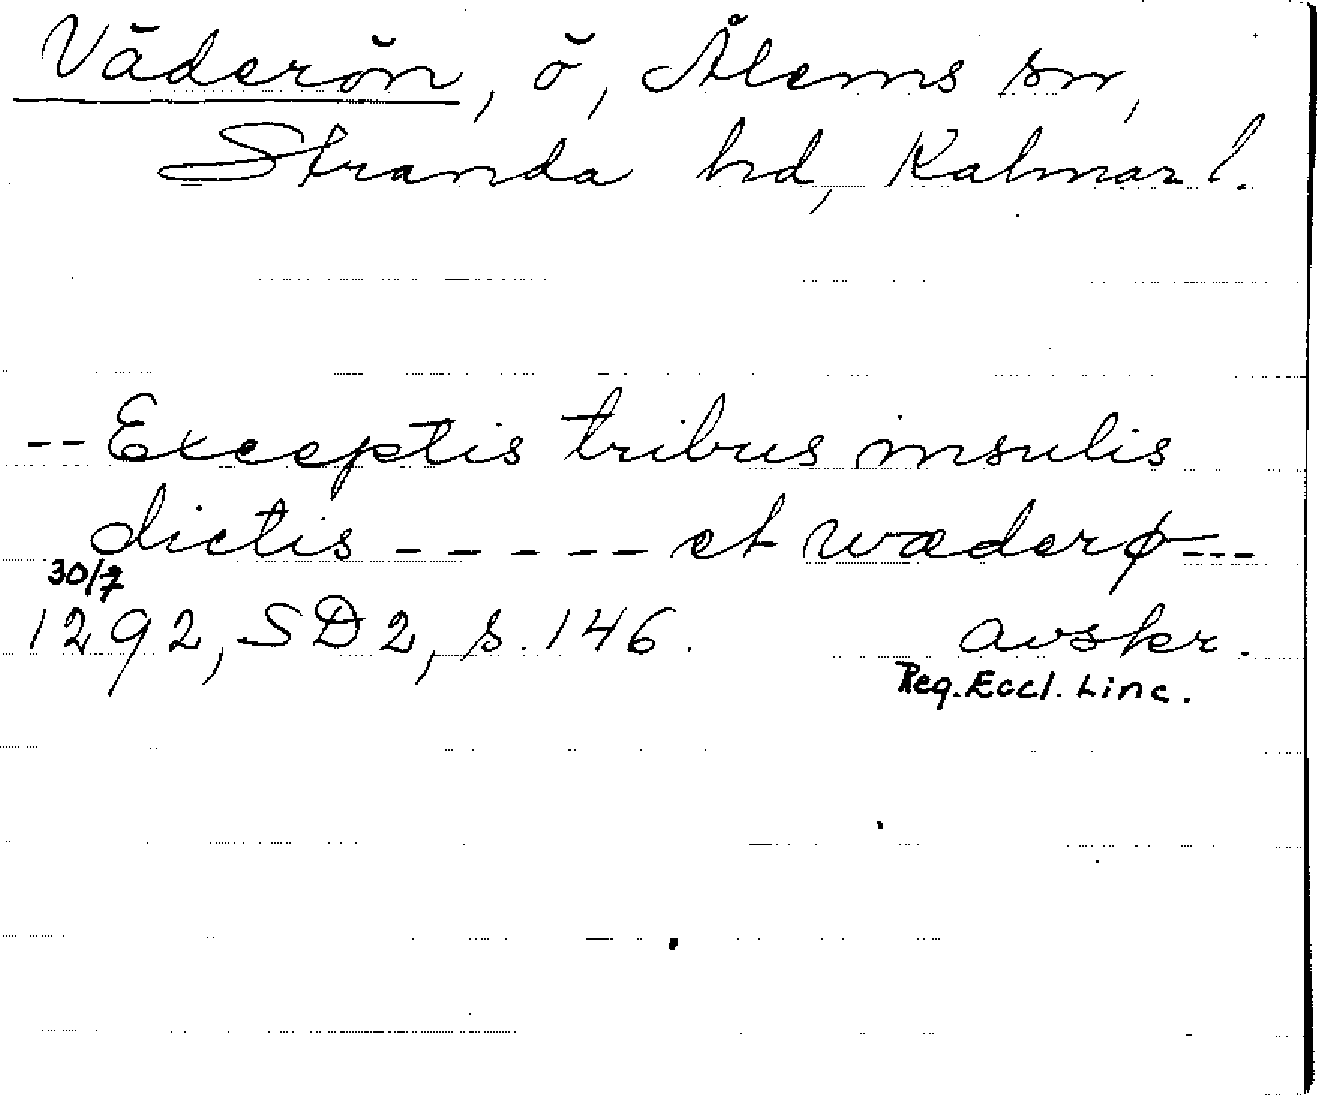 Väderön, ö, Ålems sn,
Stranda hd, Kalmar l.
-- Exceptis tribus insulis
dictis ----- et wæderø ---
30/7
1292, SD 2, s. 146. avskr.
Reg. Eccl. Linc.